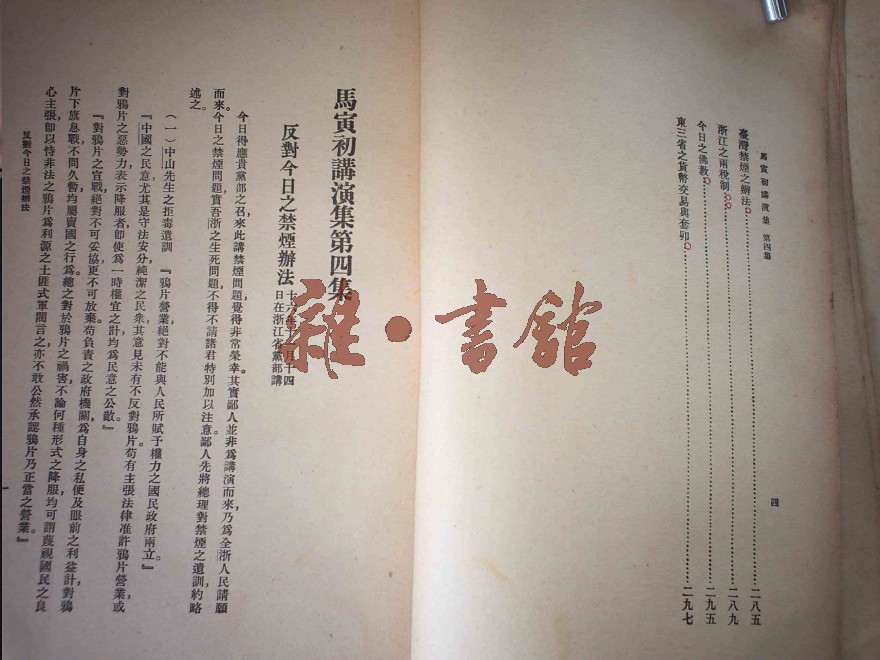 馬寅初講演集 第四集
臺灣禁煙之辦法……二八五
浙江之兩稅制……二八九
今日之佛教……二九五
東三省之貨幣交易與套卯……二九七
四
馬寅初講演集第四集
反對今日之禁煙辦法
十六年十一月十四
日在浙江省黨部講
今日得應貴黨部之召來此講禁煙問題，覺得非常榮幸。其實鄙人並非爲講演而來，乃爲全浙人民請願
而來。今日之禁煙問題，實吾浙之生死問題，不得不請諸君特別加以注意。鄙人先將總理對禁煙之遺訓，約略
述之。
（一）中山先生之拒毒遺訓　『鴉片營業，絕對不能與人民所賦予權力之國民政府兩立。』
『中國之民意，尤其是守法安分純潔之民衆，其意見未有不反對鴉片。苟有主張法律准許鴉片營業，或
對鴉片之惡勢力表示降服者，卽使爲一時權宜之計，均爲民意之公敵。』
『對鴉片之宣戰，絕對不可妥協，更不可放棄。苟負責之政府機關，爲自身之私便及眼前之利益計，對鴉
片下旗息戰，不問久暫，均屬賣國之行爲。總之對於鴉片之禍害，不論何種形式之降服，均可謂蔑視國民之良
心主張。卽以恃非法之鴉片爲利源之土匪式軍閥言之，亦不敢公然承認鴉片乃正當之營業。』
反對今日之禁煙辦法
雜·書館